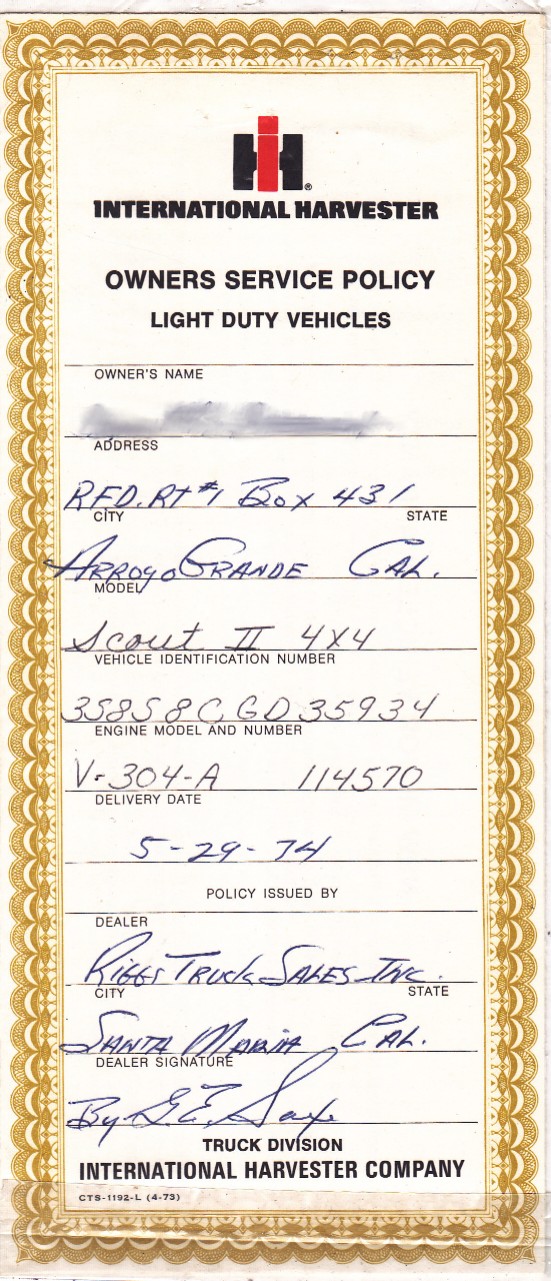 IH®
INTERNATIONAL HARVESTER
OWNERS SERVICE POLICY
LIGHT DUTY VEHICLES
OWNER'S NAME
ADDRESS
RFD. Rt #1 Box 431
CITY STATE
ARROYO GRANDE CAL.
MODEL
Scout II 4X4
VEHICLE IDENTIFICATION NUMBER
3S8S8CGD35934
ENGINE MODEL AND NUMBER
V-304-A 114570
DELIVERY DATE
5-29-74
POLICY ISSUED BY
DEALER
RIGGS TRUCK SALES INC.
CITY STATE
SANTA MARIA CAL.
DEALER SIGNATURE
By G.E.
TRUCK DIVISION
INTERNATIONAL HARVESTER COMPANY
CTS-1192-L (4-73)